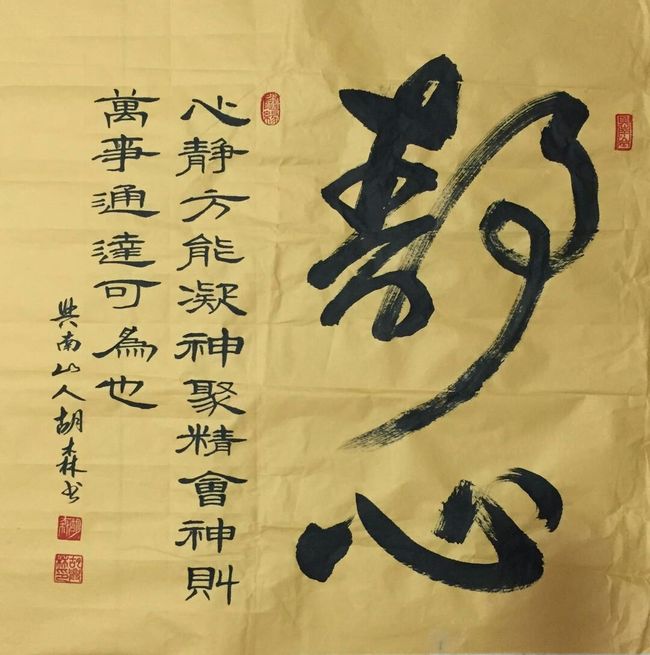 静心
心静方能凝神聚精會神則
萬事通達可為也
兴南山人胡森书